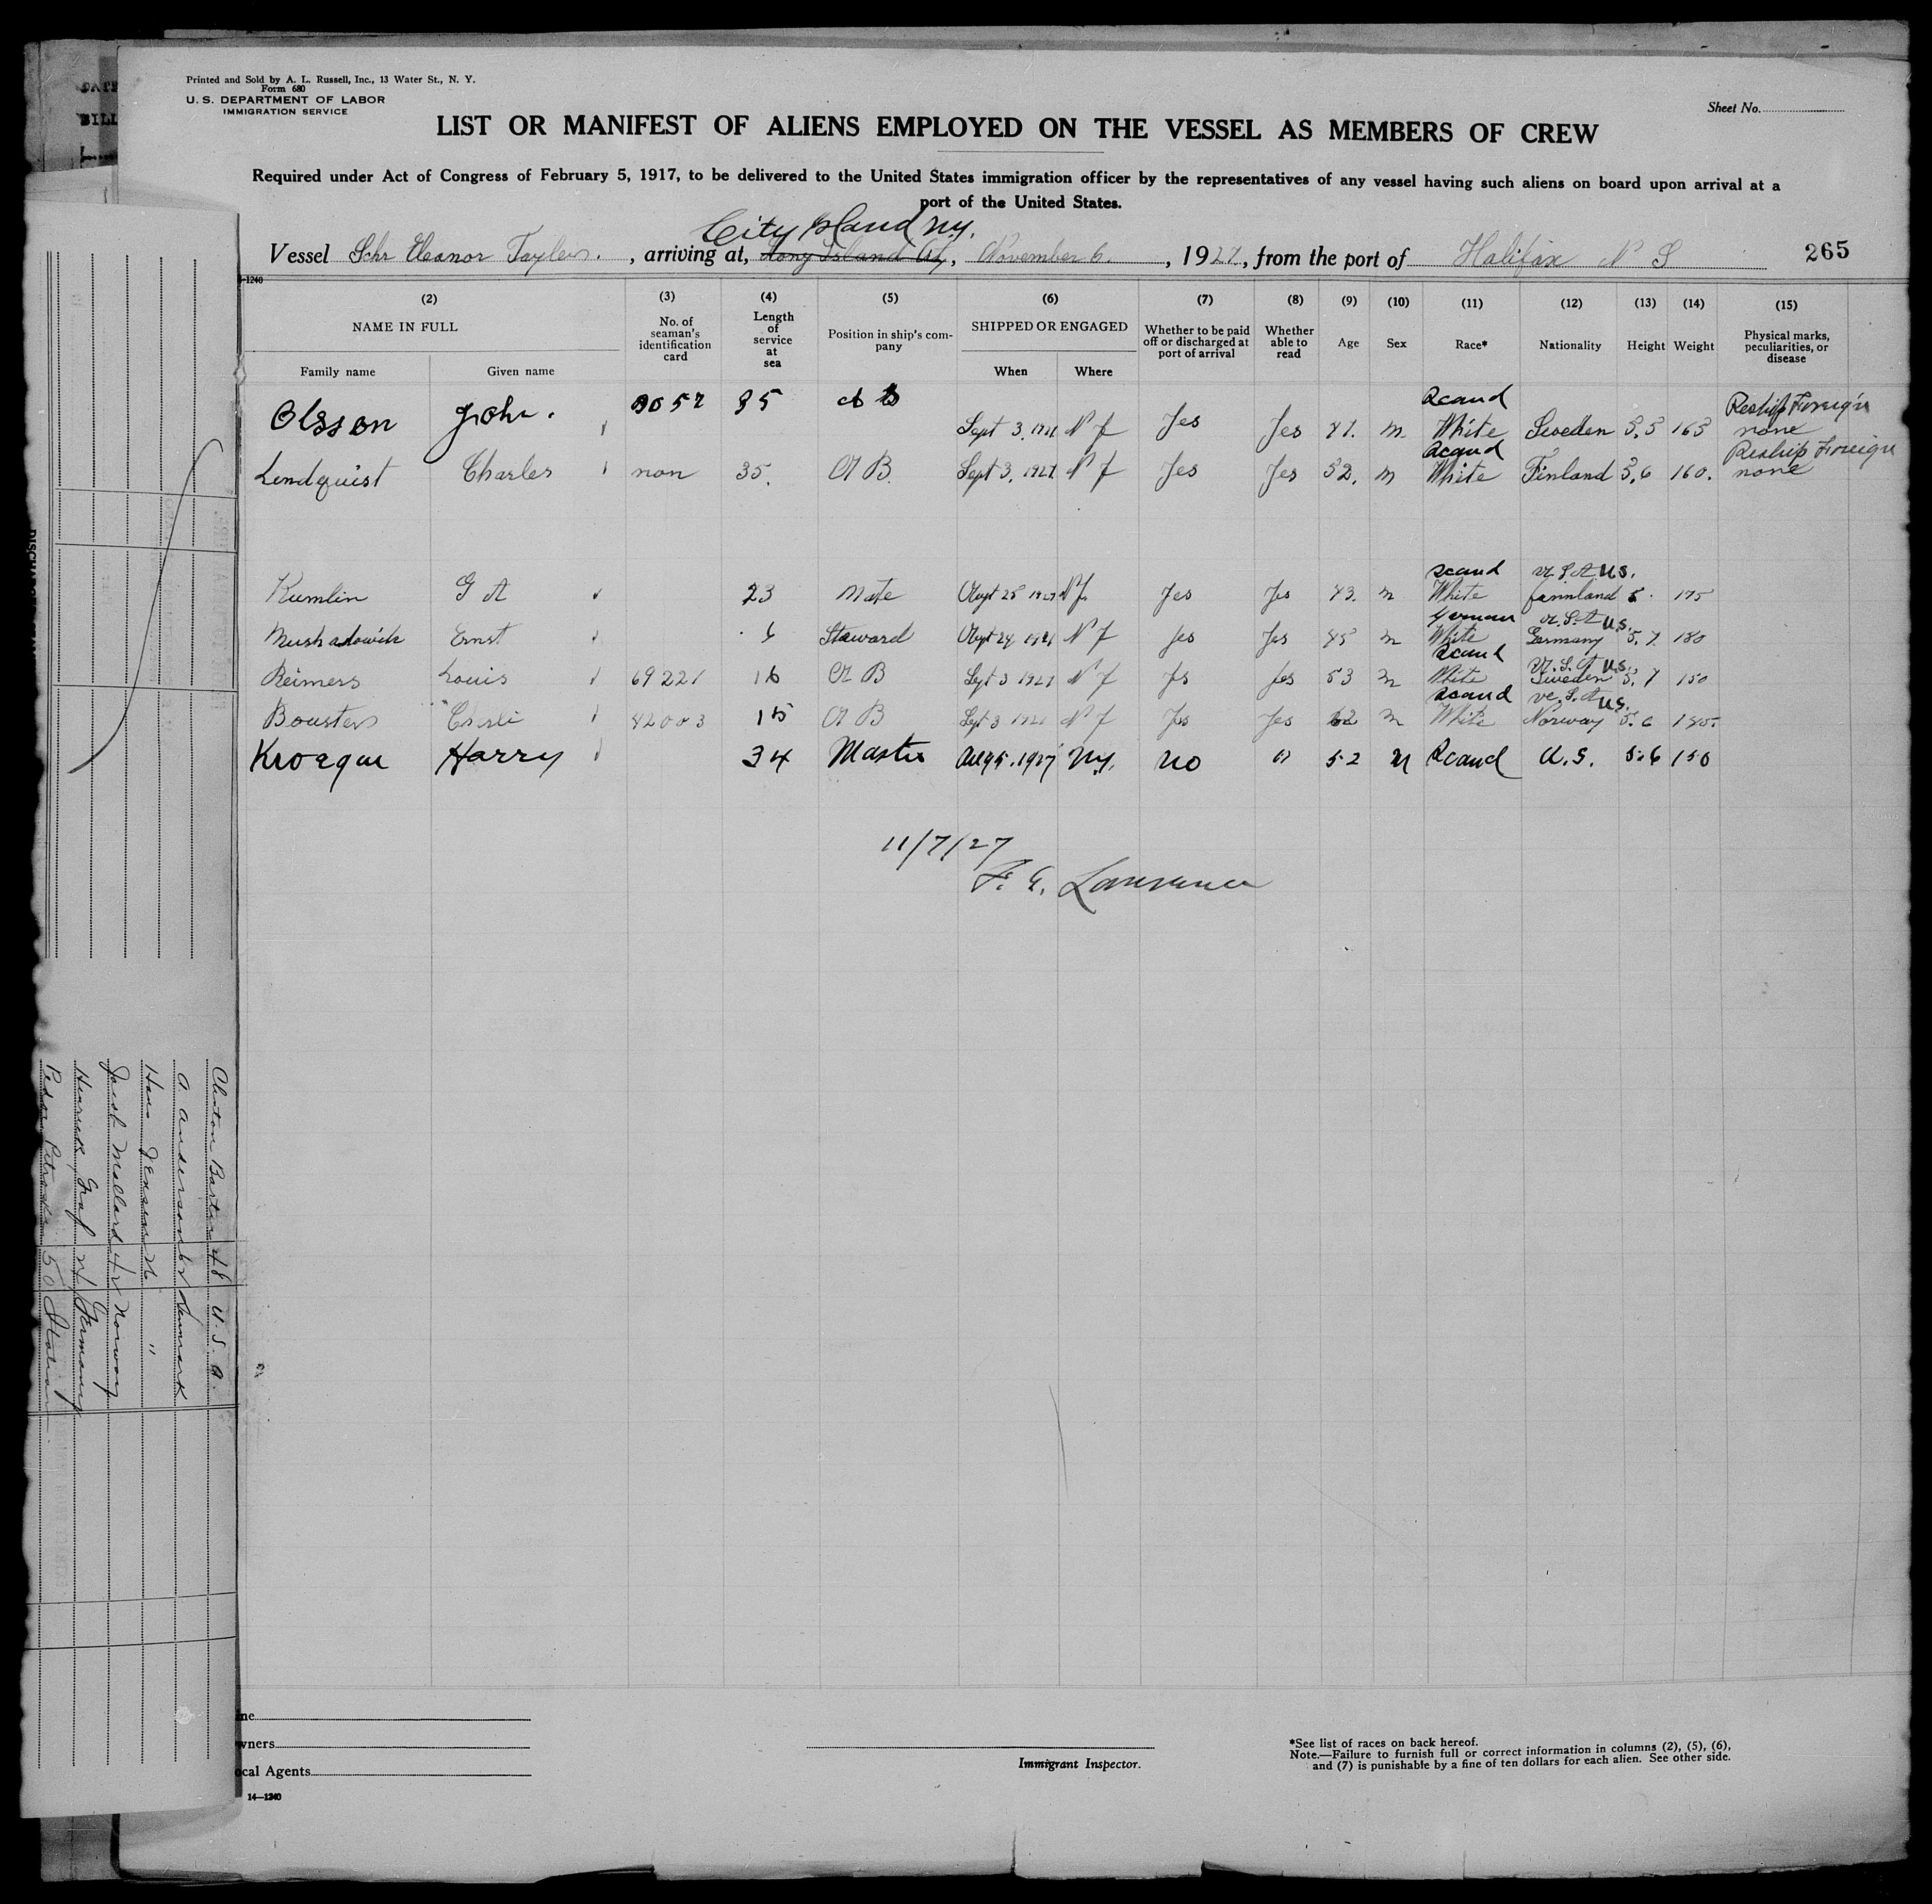 Printed and Sold by A. L. Russell, Inc., 13 Water St., N. Y.
Form 680
U. S. DEPARTMENT OF LABOR
IMMIGRATION SERVICE
Sheet No.
LIST OR MANIFEST OF ALIENS EMPLOYED ON THE VESSEL AS MEMBERS OF CREW
Required under Act of Congress of February 5, 1917, to be delivered to the United States immigration officer by the representatives of any vessel having such aliens on board upon arrival at a
port of the United States.
City Island N.Y.
Vessel Schr Eleanor Taylor, arriving at, Long Island City, November 6, 1927, from the port of Halifax N S 265
(2) (3) (4) (5) (6) (7) (8) (9) (10) (11) (12) (13) (14) (15)
NAME IN FULL No. of seaman's identification card Length of service at sea Position in ship's company SHIPPED OR ENGAGED Whether to be paid off or discharged at port of arrival Whether able to read Age Sex Race* Nationality Height Weight Physical marks, peculiarities, or disease
Family name Given name When Where
Scand Reship Foreign
Olsson John. 35 A B Sept 3, N J Yes Yes m. White Sweden 5.5 165 none
Scand Reship Foreign
Lindquist Charles non 35. A B. Sept 3, 1927 N J Yes Yes 52. m White Finland 5.6 160. none
Scand U.S.A U.S.
Kumlin G A 23 Mate 25 N J. Yes Yes 43. m White 175
German U.S.A U.S.
Ernst Steward N J Yes Yes 45 m White Germany 5.7. 180
Scand U.S.A U.S.
Reimers Louis 69221 16 A B Sept 3 1927 N J Yes Yes 53 m White Sweden 5.7 150
Scand U.S.A U.S.
Charli 15 A B Sept 3 N J Yes Yes 62 m White Norway 5.6
Harry 34 Master Aug 5. 1927 N.Y. No 52 M Scand U.S. 5.6 150
11/7/27
F. G. Lawrence
Clinton Baxter 48 U.S.A.
A. Anderson Denmark
Hans Jensen "
Mallard Norway
Graf Germany
50 Italian
Owners
Local Agents
14—1240
Immigrant Inspector.
*See list of races on back hereof.
Note.—Failure to furnish full or correct information in columns (2), (5), (6),
and (7) is punishable by a fine of ten dollars for each alien. See other side.